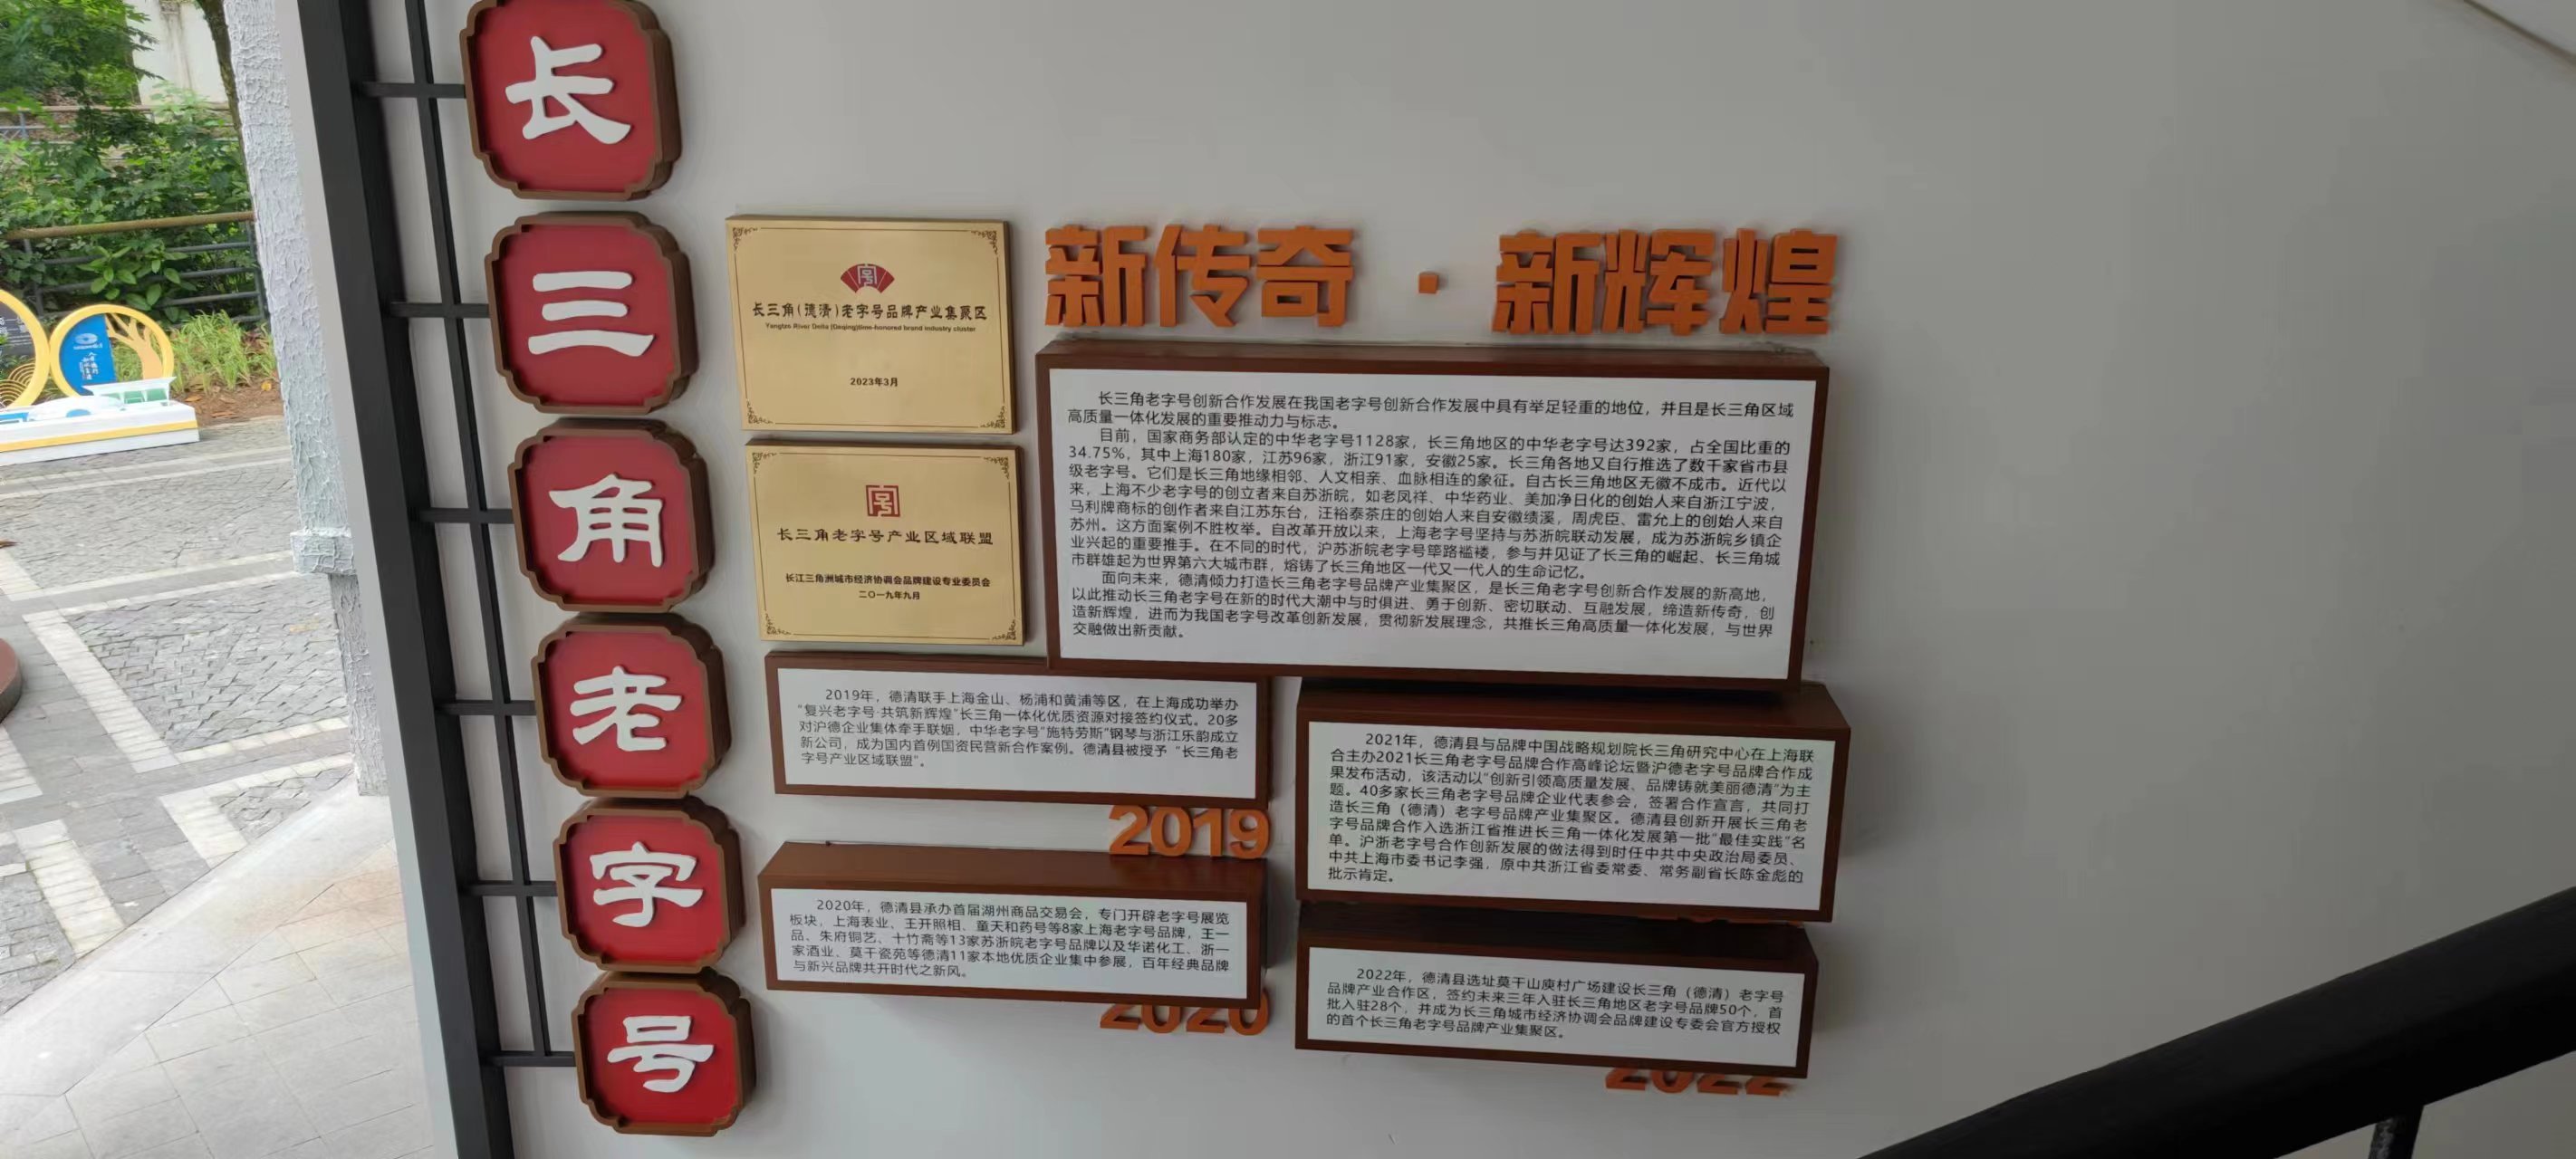 长
三
角
老
字
号
长三角(德清)老字号品牌产业集聚区
Yangtze River Delta (Deqing)time-honored brand industry cluster
2023年3月
长三角老字号产业区域联盟
长江三角洲城市经济协调会品牌建设专业委员会
二〇一九年九月
新传奇·新辉煌
长三角老字号创新合作发展在我国老字号创新合作发展中具有举足轻重的地位，并且是长三角区域
高质量一体化发展的重要推动力与标志。
目前，国家商务部认定的中华老字号1128家，长三角地区的中华老字号达392家，占全国比重的
34.75%，其中上海180家，江苏96家，浙江91家，安徽25家。长三角各地又自行推选了数千家省市县
级老字号。它们是长三角地缘相邻、人文相亲、血脉相连的象征。自古长三角地区无徽不成市。近代以
来，上海不少老字号的创立者来自苏浙皖，如老凤祥、中华药业、美加净日化的创始人来自浙江宁波，
马利牌商标的创作者来自江苏东台，汪裕泰茶庄的创始人来自安徽绩溪，周虎臣、雷允上的创始人来自
苏州。这方面案例不胜枚举。自改革开放以来，上海老字号坚持与苏浙皖联动发展，成为苏浙皖乡镇企
业兴起的重要推手。在不同的时代，沪苏浙皖老字号筚路褴褛，参与并见证了长三角的崛起、长三角城
市群雄起为世界第六大城市群，熔铸了长三角地区一代又一代人的生命记忆。
面向未来，德清倾力打造长三角老字号品牌产业集聚区，是长三角老字号创新合作发展的新高地，
以此推动长三角老字号在新的时代大潮中与时俱进、勇于创新、密切联动、互融发展，缔造新传奇，创
造新辉煌，进而为我国老字号改革创新发展，贯彻新发展理念，共推长三角高质量一体化发展，与世界
交融做出新贡献。
2019年，德清联手上海金山、杨浦和黄浦等区，在上海成功举办
“复兴老字号·共筑新辉煌”长三角一体化优质资源对接签约仪式。20多
对沪德企业集体牵手联姻，中华老字号“施特劳斯”钢琴与浙江乐韵成立
新公司，成为国内首例国资民营新合作案例。德清县被授予“长三角老
字号产业区域联盟”。
2019
2020年，德清县承办首届湖州商品交易会，专门开辟老字号展览
板块，上海表业、王开照相、童天和药号等8家上海老字号品牌，王一
品、朱府铜艺、十竹斋等13家苏浙皖老字号品牌以及华诺化工、浙一
家酒业、莫干瓷苑等德清11家本地优质企业集中参展，百年经典品牌
与新兴品牌共开时代之新风。
2020
2021年，德清县与品牌中国战略规划院长三角研究中心在上海联
合主办2021长三角老字号品牌合作高峰论坛暨沪德老字号品牌合作成
果发布活动，该活动以“创新引领高质量发展、品牌铸就美丽德清”为主
题。40多家长三角老字号品牌企业代表参会，签署合作宣言，共同打
造长三角（德清）老字号品牌产业集聚区。德清县创新开展长三角老
字号品牌合作入选浙江省推进长三角一体化发展第一批“最佳实践”名
单。沪浙老字号合作创新发展的做法得到时任中共中央政治局委员、
中共上海市委书记李强，原中共浙江省委常委、常务副省长陈金彪的
批示肯定。
2022年，德清县选址莫干山庾村广场建设长三角（德清）老字号
品牌产业合作区，签约未来三年入驻长三角地区老字号品牌50个，首
批入驻28个，并成为长三角城市经济协调会品牌建设专委会官方授权
的首个长三角老字号品牌产业集聚区。
2022